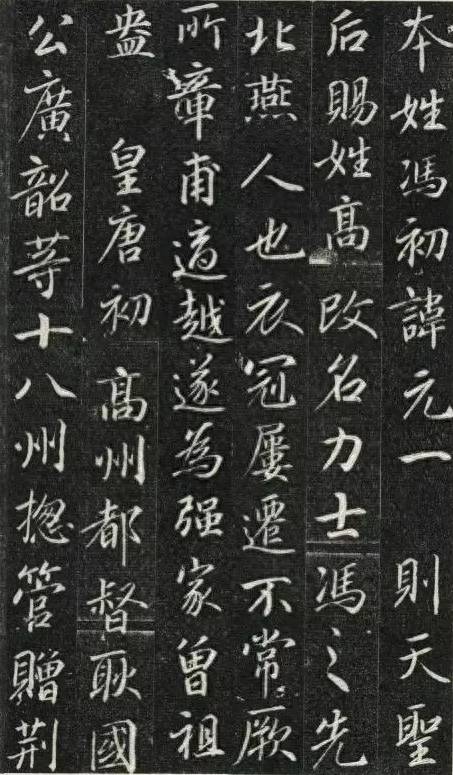 本姓馮初諱元一 則天聖
后賜姓高改名力士馮之先
北燕人也衣冠屢遷不常厥
所章甫適越遂為强家曾祖
盎 皇唐初高州都督耿國
公廣韶等十八州揔管贈荆